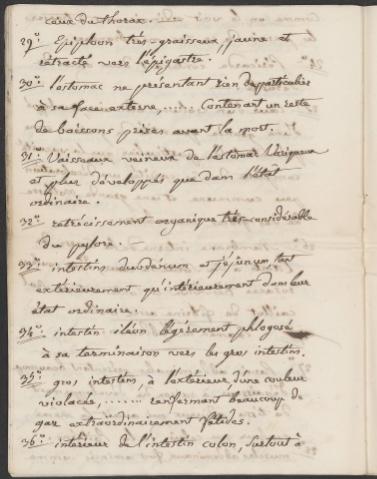 ceux du thorax.
29.° Epiploon très-graisseux, jaune et
retracté vers l'épigastre.
30.° l'estomac ne présentant rien de particulier
à sa face externe, ..... Contenant un reste
de boissons prises avant la mort.
31.° Vaisseaux veineux de l'estomac Variqueux
et plus développés que dans l'état
ordinaire.
32.° retrécissement organique très-considérable
du pylore.
33.° intestins duodénum et jéjunum tant
extérieurement qu'intérieurement dans leur
état ordinaire.
34.° intestin iléon légèrement phlogosé
à sa terminaison vers les gros intestins.
35.° gros intestins, à l'extérieur, d'une couleur
violacée, ....... renfermant beaucoup de
gaz extraordinairement fétides.
36.° intérieur de l'intestin colon, surtout à